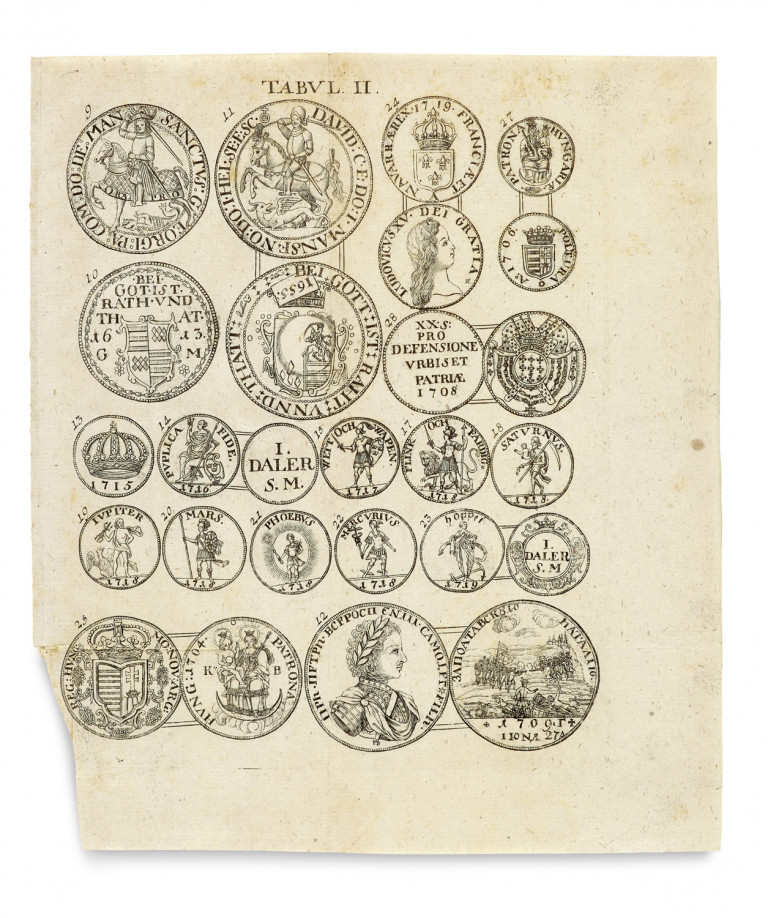 TABVL. II.
9
SANCTVS: GEORGI: PA: COM: DO: DE: MAN
11
DAVID: C: E: DO: I: MANSF: NO: DO: I: HEL: SE: E: SC:
24
FRANCIÆ ET NAVARRÆ REX. 1719.
27
PATRONA HVNGARIÆ
LUDOVICUS XV. DEI GRATIA
A: 1706. POLTURA
10
·BEI·
GOT·IST·
RATH·VND
TH AT·
16 13
G M
1655. BEI GOTT: IST: RAHT: VNND: THATT:
28
XX·S:
PRO
DEFENSIONE
VRBIS ET
PATRIÆ
1708
13
1715
14
PVPLICA FIDE.
1716
I.
DALER
S. M.
15
WETT OCH WAPEN.
1717
17
FLINK OCH FÄRDIG.
1718
18
SATVRNVS.
1718.
19
IVPITER
1718
20
MARS.
1718
21
PHOEBVS
1718
22
MERCVRIVS
1718
23
hoppet
1719
I.
DALER
S. M
25
MO: NOV: ARG: REG: HVNG
PATRONA HVNG: 1704.
K B
12
1709. Г
IIONA 27Λ